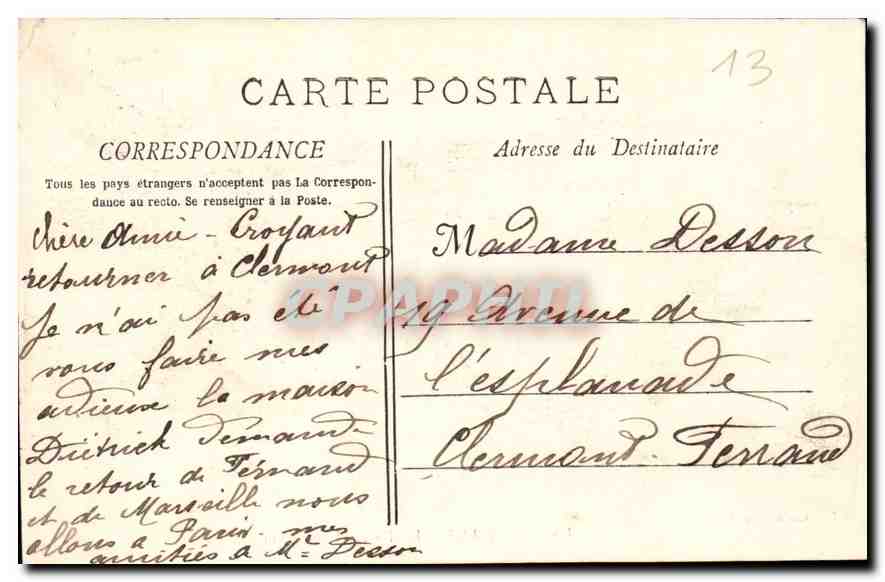 13
CARTE POSTALE
CORRESPONDANCE
Tous les pays étrangers n'acceptent pas La Correspon-
dance au recto. Se renseigner à la Poste.
chère Amie - Croyant
retourner à Clermont
je n'ai pas été
vous faire mes
adieux la maison
Diétrick demande
le retour de Fernand
et de Marseille nous
allons a Paris. mes
amitiés a Mr Desson
Adresse du Destinataire
Madame Desson
19 Avenue de
l'esplanade
Clermont-Ferrand
CPAPHIL